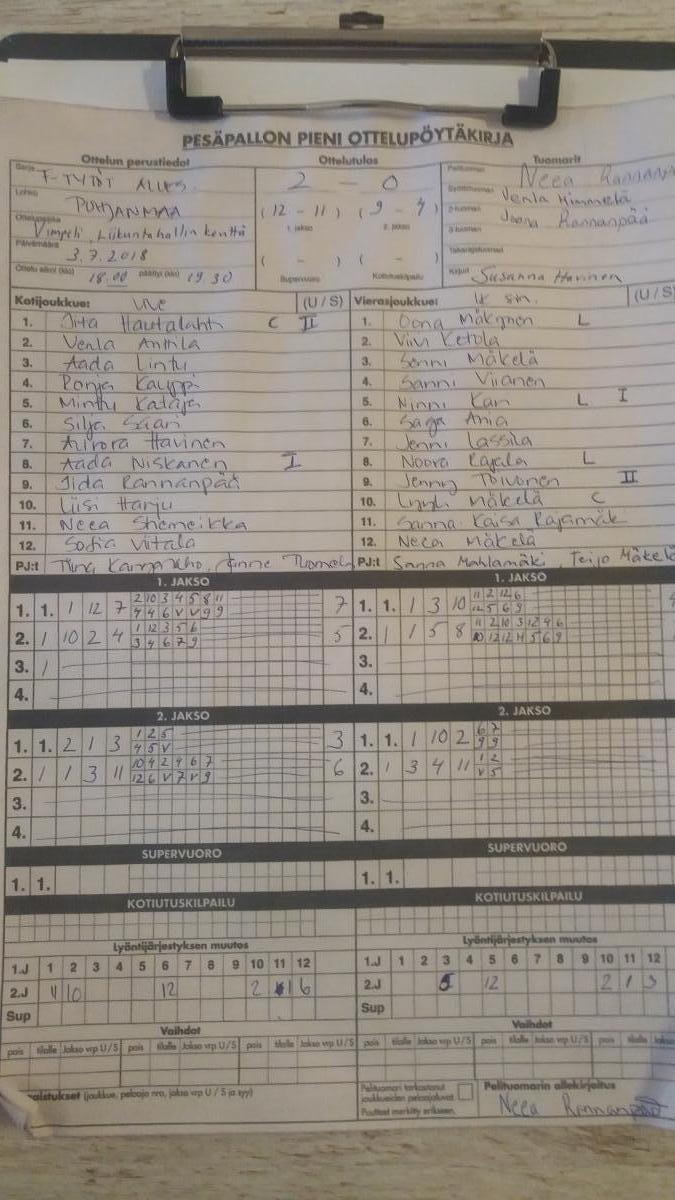 PESÄPALLON PIENI OTTELUPÖYTÄKIRJA
Ottelun perustiedot Ottelutulos Tuomarit
Sarja F-TYTÖT ALUES.
Lohko POHJANMAA
Ottelupaikka Vimpeli, Liikuntahallin kenttä
Päivämäärä 3.7.2018
Ottelu alkoi (klo) 18.00 päättyi (klo) 19.30
2 - 0
(12 - 11) (9 - 4)
1. jakso 2. jakso
( - ) ( - )
Supervuoro Kotiutuskilpailu
Pelituomari Neea Rannanpä
Syöttötuomari Venla Himmelä
2-tuomari Joona Rannanpää
3-tuomari
Takarajatuomari
Kirjuri Susanna Havinen
Kotijoukkue: ViVe (U / S)
1. Iita Hautalahti C II
2. Venla Anttila
3. Aada Lintu
4. Ronja Kauppi
5. Minttu Kataja
6. Silja Saari
7. Aurora Havinen
8. Aada Niskanen I
9. Iida Rannanpää
10. Liisi Harju
11. Neea Shemeikka
12. Sofia Viitala
PJ:t
Vierasjoukkue: (U / S)
1. Oona Mäkynen L
2. Viivi Ketola
3. Senni Mäkelä
4. Sanni Viianen
5. Ninni Kari L I
6. Saga Ania
7. Jenni Lassila
8. Noora Rajala L
9. Jenny Toivonen II
10. Lyyli Mäkelä C
11. Sanna-Kaisa Rajamäk
12. Neea Mäkelä
PJ:t Sanna Mahlamäki, Teijo Mäkelä
1. JAKSO
1. 1. 1 12 7 2 10 3 4 5 8 11 7
4 4 6 V V 9 9
2. 1 10 2 4 1 12 3 5 6 5
3 4 6 7 9
3. 1
4.
2. JAKSO
1. 1. 2 1 3 1 2 5 3
4 5 V
2. 1 1 3 11 10 4 2 4 6 7 6
12 6 V 7 V 9
3.
4.
SUPERVUORO
1. 1.
KOTIUTUSKILPAILU
Lyöntijärjestyksen muutos
1.J 1 2 3 4 5 6 7 8 9 10 11 12
2.J 11 10 12 2 1 6
Sup
Vaihdot
pois tilalle Jakso vrp U/S pois tilalle Jakso vrp U/S pois tilalle Jakso vrp U/S
1. JAKSO
1. 1. 1 3 10 11 2 12 6
12 5 6 9
2. 1 1 5 8 11 2 10 3 12 4 6
10 12 12 11 5 6 9
3.
4.
2. JAKSO
1. 1. 1 10 2 6 7
9 9
2. 1 3 4 11 1 2
V 5
3.
4.
SUPERVUORO
1. 1.
KOTIUTUSKILPAILU
Lyöntijärjestyksen muutos
1.J 1 2 3 4 5 6 7 8 9 10 11 12
2.J 5 12 2 1 3
Sup
Vaihdot
pois tilalle Jakso vrp U/S pois tilalle Jakso vrp U/S pois tilalle Jakso
(joukkue, pelaaja nro, jakso vrp U / S ja syy)
Pelituomari tarkastanut
joukkueiden pelaajaluvat.
Puutteet merkitty erikseen.
Pelituomarin allekirjoitus
Neea Rannanpää